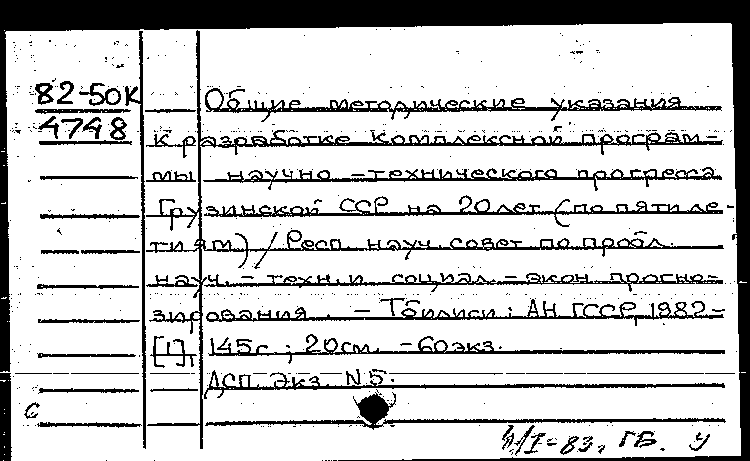 82-50К Общие методические указания
4748 к разработке комплексной програм-
мы научно-технического прогресса
Грузинской ССР на 20 лет (по пятиле-
тиям) / Респ. науч. совет по пробл.
науч.-техн. и социал.-экон. прогно-
зирования. - Тбилиси: АН ГССР, 1982-
[1], 145с.; 20см. - 60экз.
ДСП. Экз. N 5.
С
I-83, ГБ. У